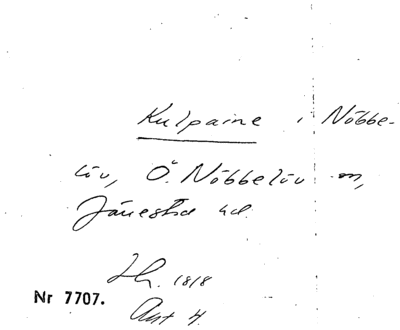 Kulpaine i Nöbbe-
löv, Ö. Nöbbelöv sn,
Järestad hd.
1818
Nr 7707.
Avst 4.